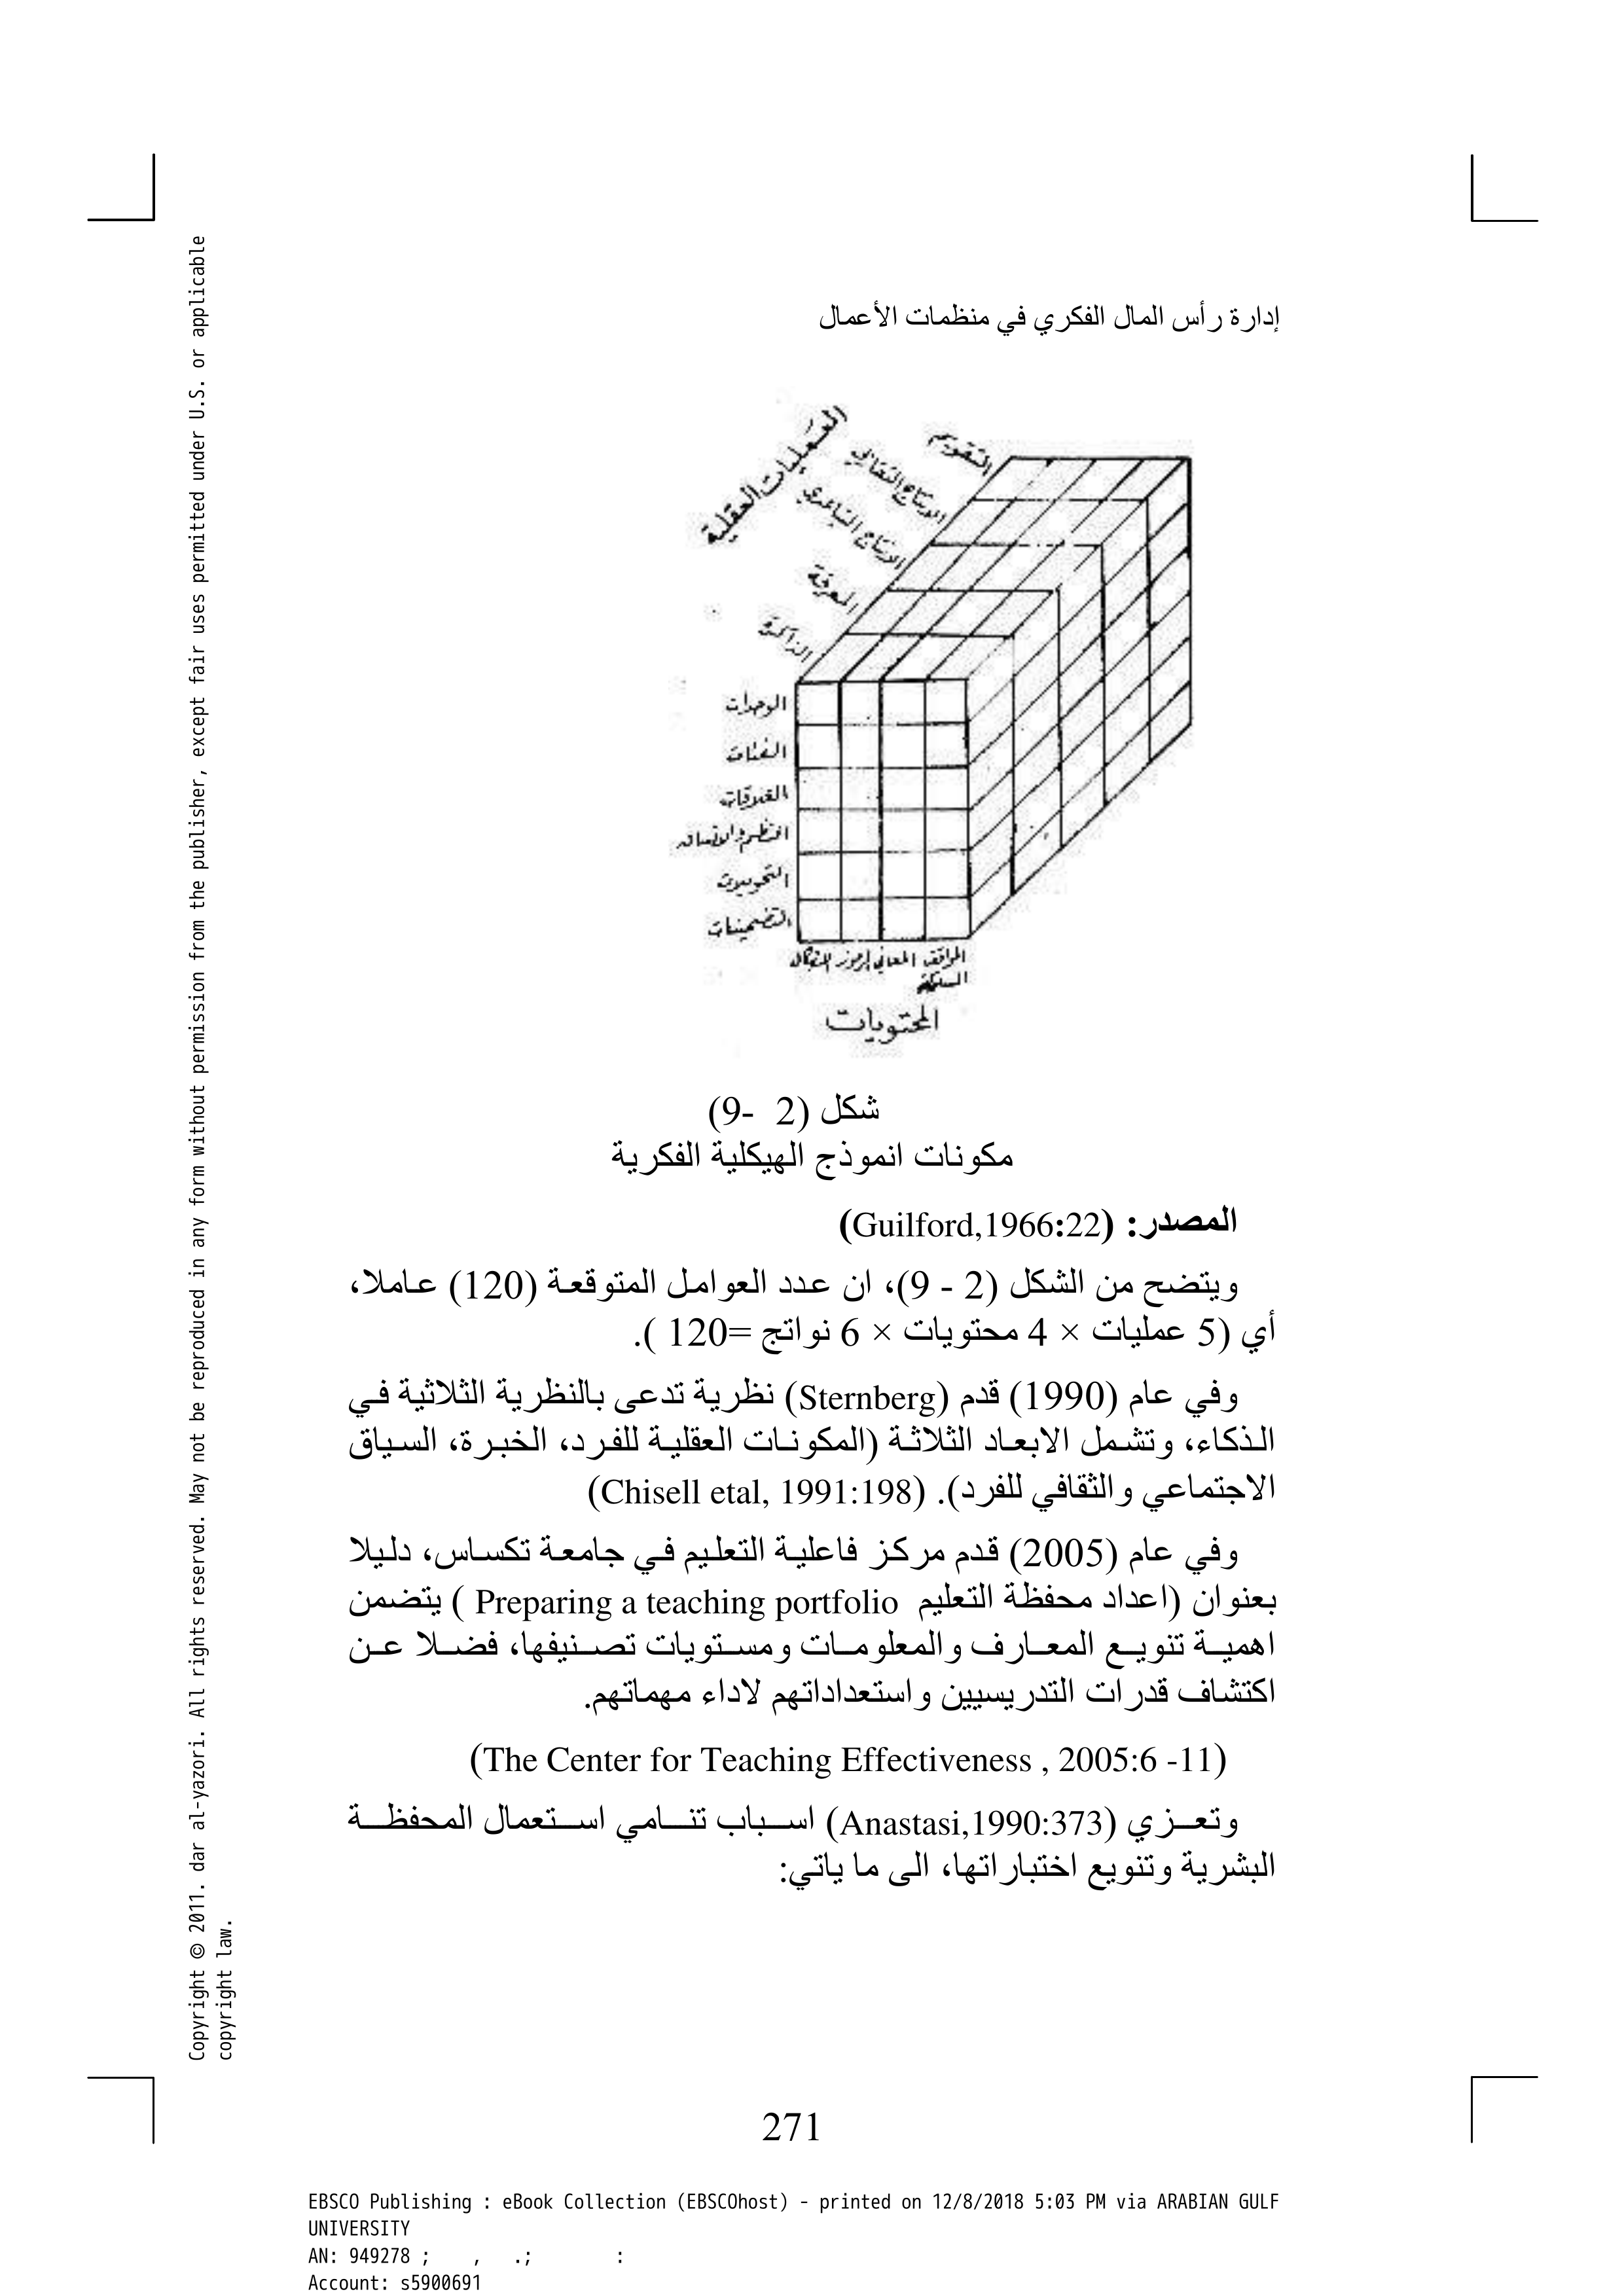 إدارة رأس المال الفكري في منظمات الأعمال
العمليات العقلية
التقويم
الانتاج التقاربي
الانتاج التباعدي
المعرفة
الذاكرة
الوحدات
الفئات
العلاقات
التحويلات
التضمينات
المواقف المعاني الرموز الاشكال
السلوكية
المحتويات
شكل (2 -9)
مكونات انموذج الهيكلية الفكرية
المصدر: (Guilford,1966:22)
ويتضح من الشكل (2 - 9)، ان عدد العوامل المتوقعة (120) عاملا،
أي (5 عمليات × 4 محتويات × 6 نواتج =120 ).
وفي عام (1990) قدم (Sternberg) نظرية تدعى بالنظرية الثلاثية في
الذكاء، وتشمل الابعاد الثلاثة (المكونات العقلية للفرد، الخبرة، السياق
الاجتماعي والثقافي للفرد). (Chisell etal, 1991:198)
وفي عام (2005) قدم مركز فاعلية التعليم في جامعة تكساس، دليلا
بعنوان (اعداد محفظة التعليم Preparing a teaching portfolio ) يتضمن
اهمية تنويع المعارف والمعلومات ومستويات تصنيفها، فضلا عن
اكتشاف قدرات التدريسيين واستعداداتهم لاداء مهماتهم.
(The Center for Teaching Effectiveness , 2005:6 -11)
وتعزي (Anastasi,1990:373) اسباب تنامي استعمال المحفظة
البشرية وتنويع اختباراتها، الى ما ياتي:
271
Copyright © 2011. dar al-yazori. All rights reserved. May not be reproduced in any form without permission from the publisher, except fair uses permitted under U.S. or applicable
copyright law.
EBSCO Publishing : eBook Collection (EBSCOhost) - printed on 12/8/2018 5:03 PM via ARABIAN GULF
UNIVERSITY
AN: 949278 ; , .; :
Account: s5900691